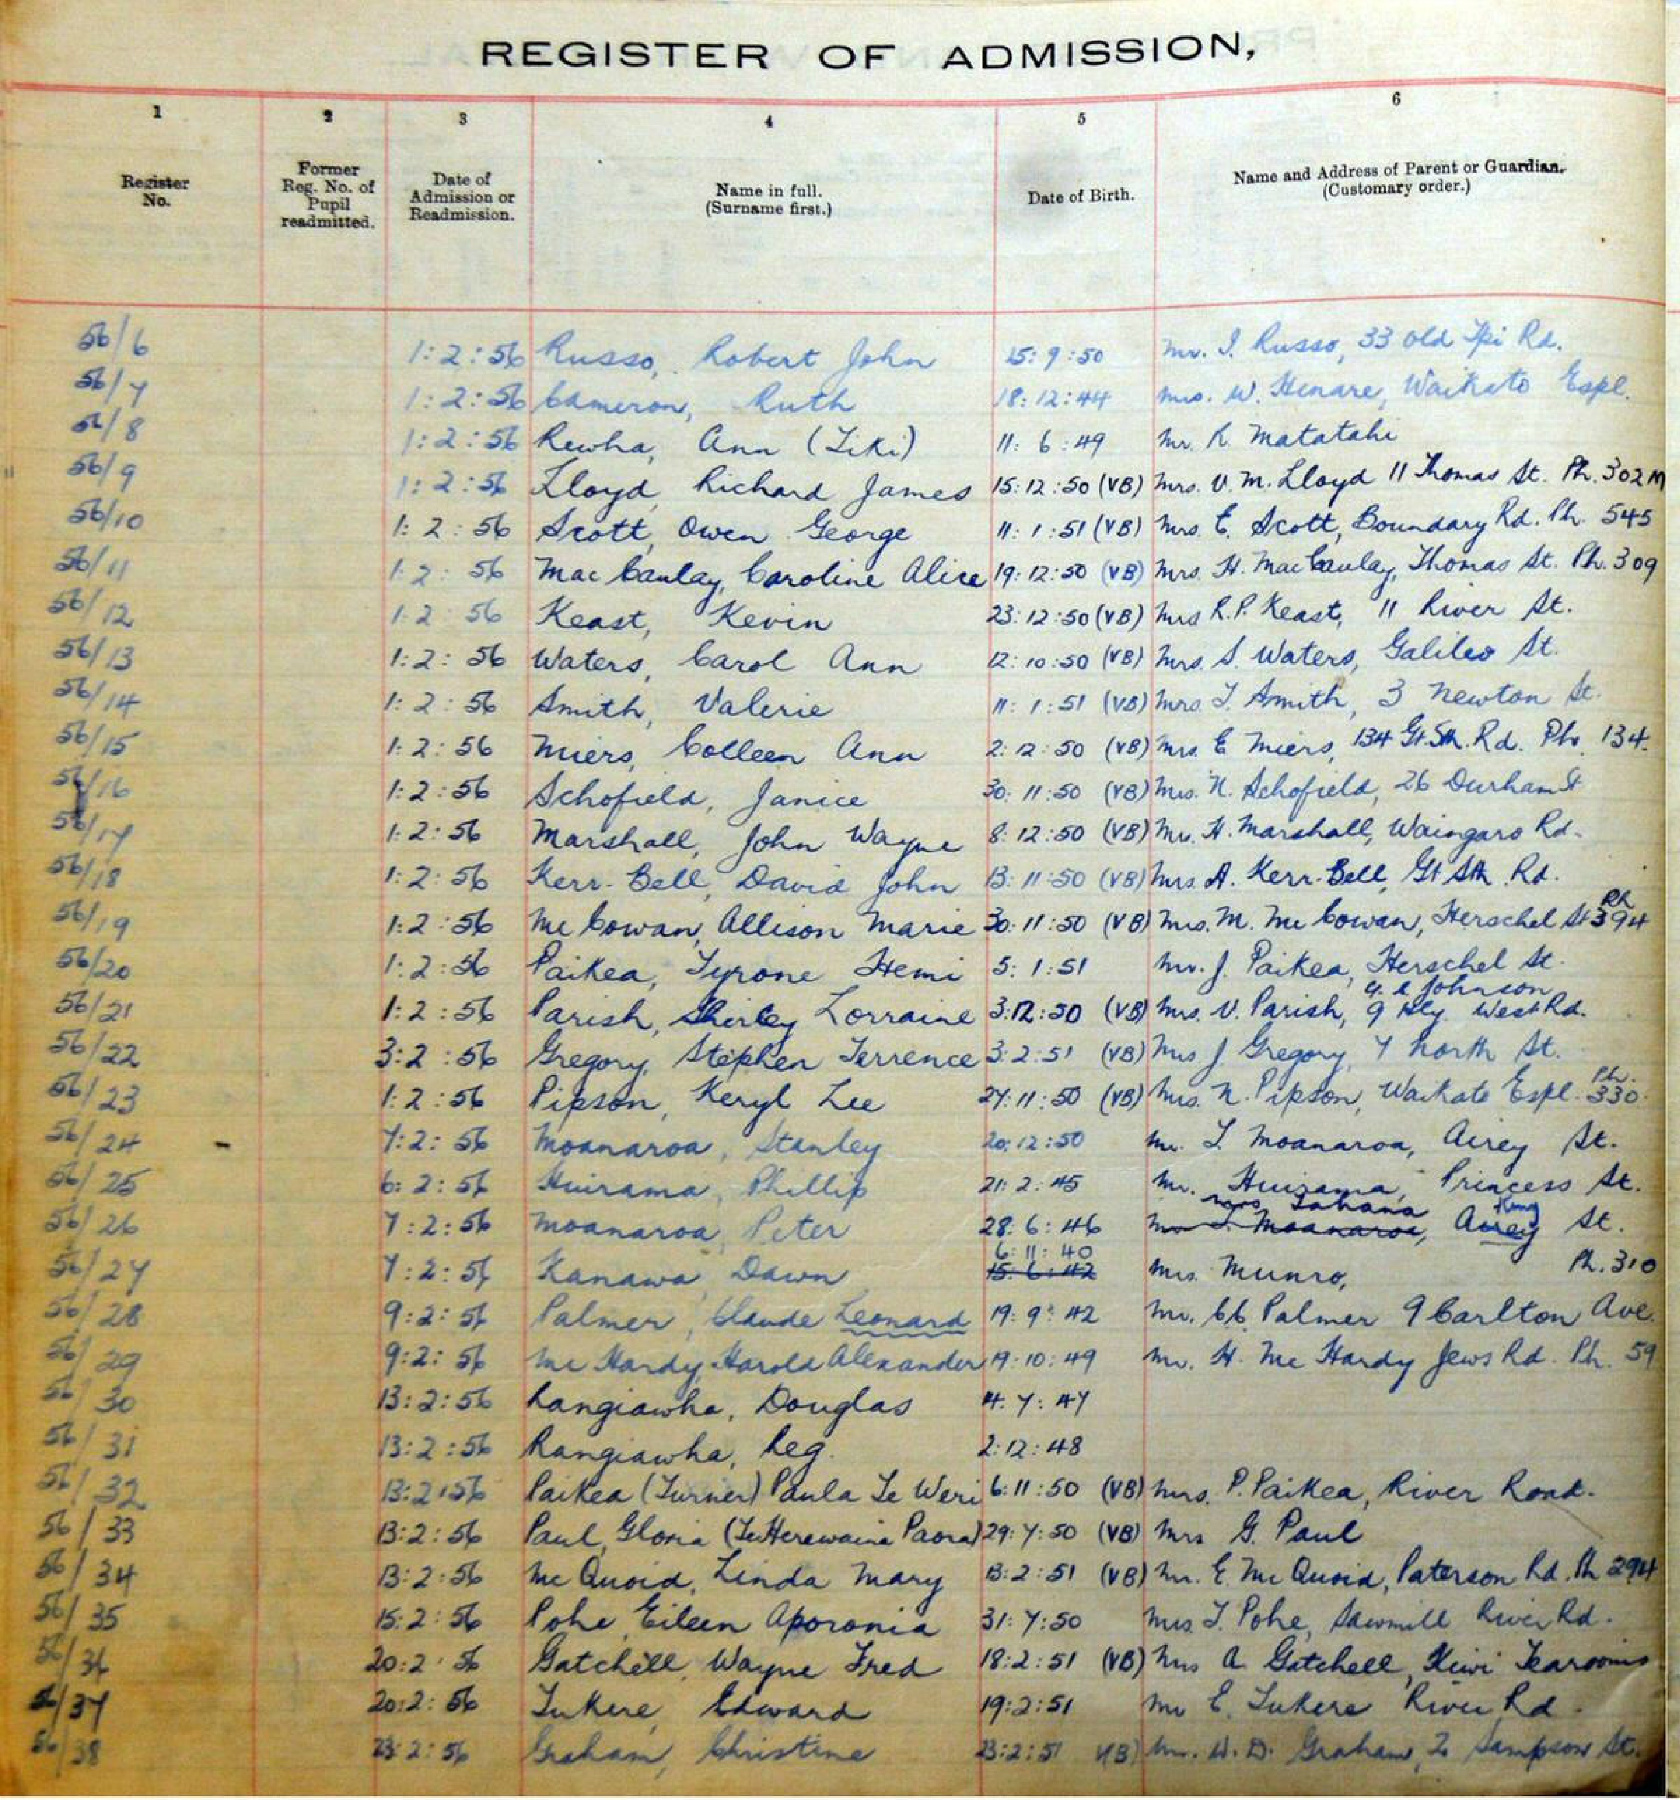 REGISTER OF ADMISSION,
1 2 3 4 5 6
Register No. Former Reg. No. of Pupil readmitted. Date of Admission or Readmission. Name in full. (Surname first.) Date of Birth. Name and Address of Parent or Guardian. (Customary order.)
56/6 1:2:56 Russo, Robert John 15:9:50 Mr. I. Russo, 33 Old Tpi Rd.
56/7 1:2:56 Cameron, Ruth 18:12:44 Mrs. W. Henare, Waikato Espl.
56/8 1:2:56 Rewha, Ann (Tiki) 11:6:49 Mr. R. Matatahi
56/9 1:2:56 Lloyd, Richard James 15:12:50 (VB) Mrs. V. M. Lloyd 11 Thomas St. Ph. 302M
56/10 1:2:56 Scott, Owen George 11:1:51 (VB) Mrs E. Scott, Boundary Rd. Ph. 545
56/11 1:2:56 MacCaulay, Caroline Alice 19:12:50 (VB) Mrs. H. MacCaulay, Thomas St. Ph. 309
56/12 1:2:56 Keast, Kevin 23:12:50 (VB) Mrs R.P. Keast, 11 River St.
56/13 1:2:56 Waters, Carol Ann 12:10:50 (VB) Mrs. S. Waters, Galileo St.
56/14 1:2:56 Smith, Valerie 11:1:51 (VB) Mrs. T. Smith, 3 Newton St.
56/15 1:2:56 Miers, Colleen Ann 2:12:50 (VB) Mrs E Miers, 134 Gt. Sth. Rd. Ph. 134.
56/16 1:2:56 Schofield, Janice 30:11:50 (VB) Mrs. N. Schofield, 26 Durham St
56/17 1:2:56 Marshall, John Wayne 8:12:50 (VB) Mr. H. Marshall, Waingaro Rd.
56/18 1:2:56 Kerr-Bell, David John 13:11:50 (VB) Mrs A. Kerr-Bell, Gt Sth. Rd.
56/19 1:2:56 McCowan, Allison Marie 30:11:50 (VB) Mrs. M. McCowan, Herschel St Ph 394
56/20 1:2:56 Paikea, Tyrone Hemi 5:1:51 Mr. J. Paikea, Herschel St.
56/21 1:2:56 Parish, Shirley Lorraine 3:12:50 (VB) Mrs. V. Parish, Johnson 9 Hly. West Rd.
56/22 3:2:56 Gregory, Stephen Terrence 3:2:51 (VB) Mrs J. Gregory, 7 North St.
56/23 1:2:56 Pipson, Keryl Lee 27:11:50 (VB) Mrs. N. Pipson, Waikato Espl. Ph. 330
56/24 - 7:2:56 Moanaroa, Stanley 20:12:50 Mr. T. Moanaroa, Airey St.
56/25 6:2:56 Huirama, Phillip 21:2:45 Mr. Huirama, Princess St.
56/26 7:2:56 Moanaroa, Peter 28:6:46 Mr T. Moanaroa, Mrs. Tahana Airey King St.
56/27 7:2:56 Kanawa, Dawn 6:11:40 15:6:42 Mrs. Munro, Ph. 310
56/28 9:2:56 Palmer, Claude Leonard 19:9:42 Mr. C.C. Palmer 9 Carlton Ave.
56/29 9:2:56 McHardy, Harold Alexander 19:10:49 Mr. H. McHardy Jews Rd. Ph. 59
56/30 13:2:56 Rangiawha, Douglas 4:7:47
56/31 13:2:56 Rangiawha, Reg. 2:12:48
56/32 13:2:56 Paikea (Turner) Paula Te Weri 6:11:50 (VB) Mrs. P. Paikea, River Road.
56/33 13:2:56 Paul, Gloria (Te Herewaina Paora) 29:7:50 (VB) Mrs G. Paul
56/34 13:2:56 McQuoid, Linda Mary 13:2:51 (VB) Mr. E. McQuoid, Paterson Rd. Ph 294
56/35 15:2:56 Pohe, Eileen Aporonia 31:7:50 Mrs T. Pohe, Sawmill River Rd.
56/36 20:2:56 Gatchell, Wayne Fred 18:2:51 (VB) Mrs A. Gatchell, Kiwi Tearooms
56/37 20:2:56 Tukere, Edward 19:2:51 Mr E. Tukere River Rd.
56/38 23:2:56 Graham, Christine 23:2:51 (VB) Mr. W. D. Graham, 2 Sampson St.